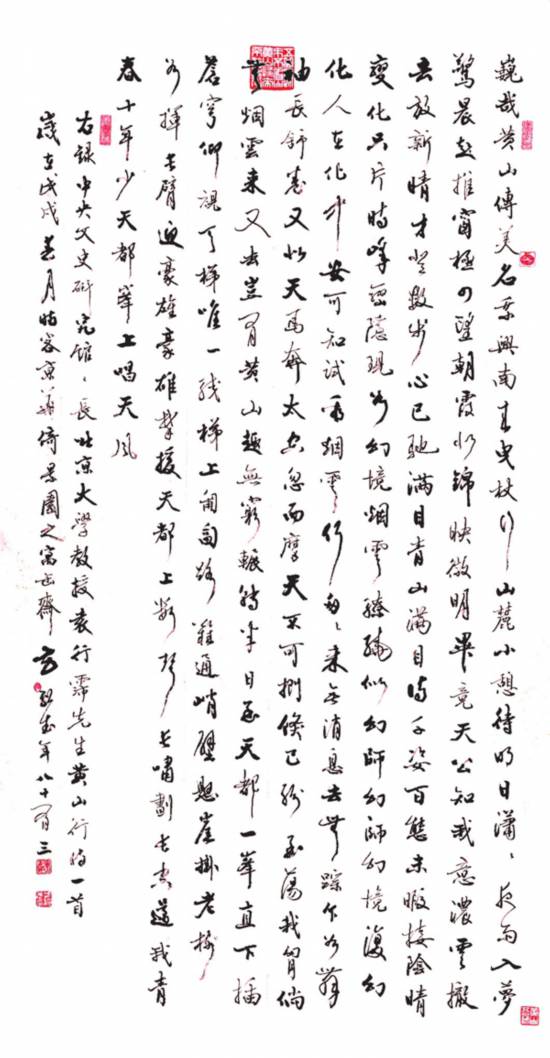 巍哉黄山傳美名乘興南來曳杖行山麓小憩待明日瀟瀟夜雨入夢
驚晨起推窗極目望朝霞似錦映微明畢竟天公知我意濃雲撤
去放新晴才登數步心已馳滿目青山滿目詩千姿百態未暇接陰晴
變化只片時峰巒隱現如幻境烟雲繚繞似幻師幻師幻境復幻
化人在化中安可知試看烟雲何匆匆來無消息去無踪乍如舞
袖長舒卷又似天馬奔太空忽而摩天不可捫倏已蕩我胷倘
無烟雲來又去豈有黄山趣無窮輾轉半日至天都一峯直下插
蒼穹仰視天梯唯一綫梯上匍匐路難通峭壁懸崖掛老樹
如揮長臂迎豪雄豪雄攀援天都上長嘯劃長空還我青
春十年少天都峯上唱天風
右録中央文史研究館館長北京大學教授袁行霈先生黄山行詩一首
歲在戊戌春月時客京華倚景園之寓齋年八十有三